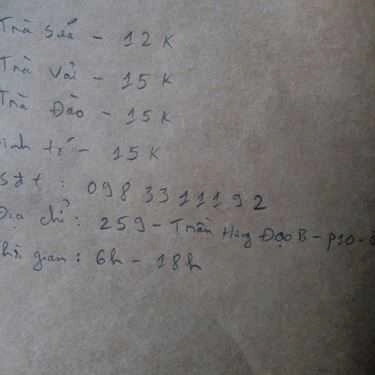 Trà Sữa - 12K
Trà Vải - 15K
Trà Đào - 15K
Sinh tố - 15K
Sđt : 098 33 11192
Địa chỉ : 259 - Trần Hưng Đạo B - P10 -
Thời gian : 6h - 18h